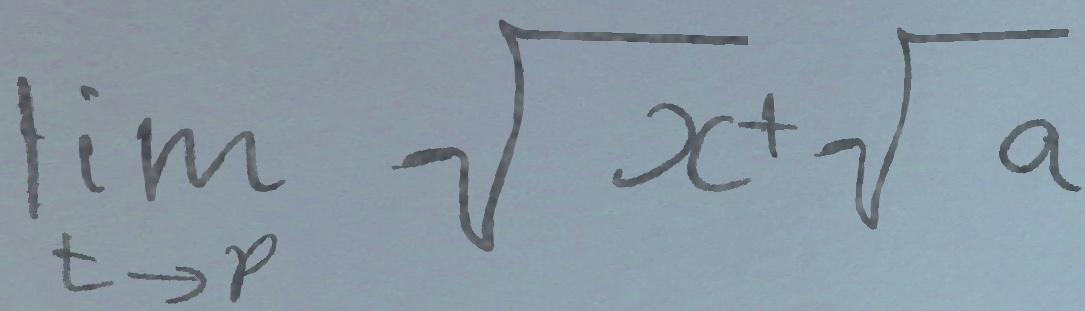 \lim_{t \to p} \sqrt{x} + \sqrt{a}